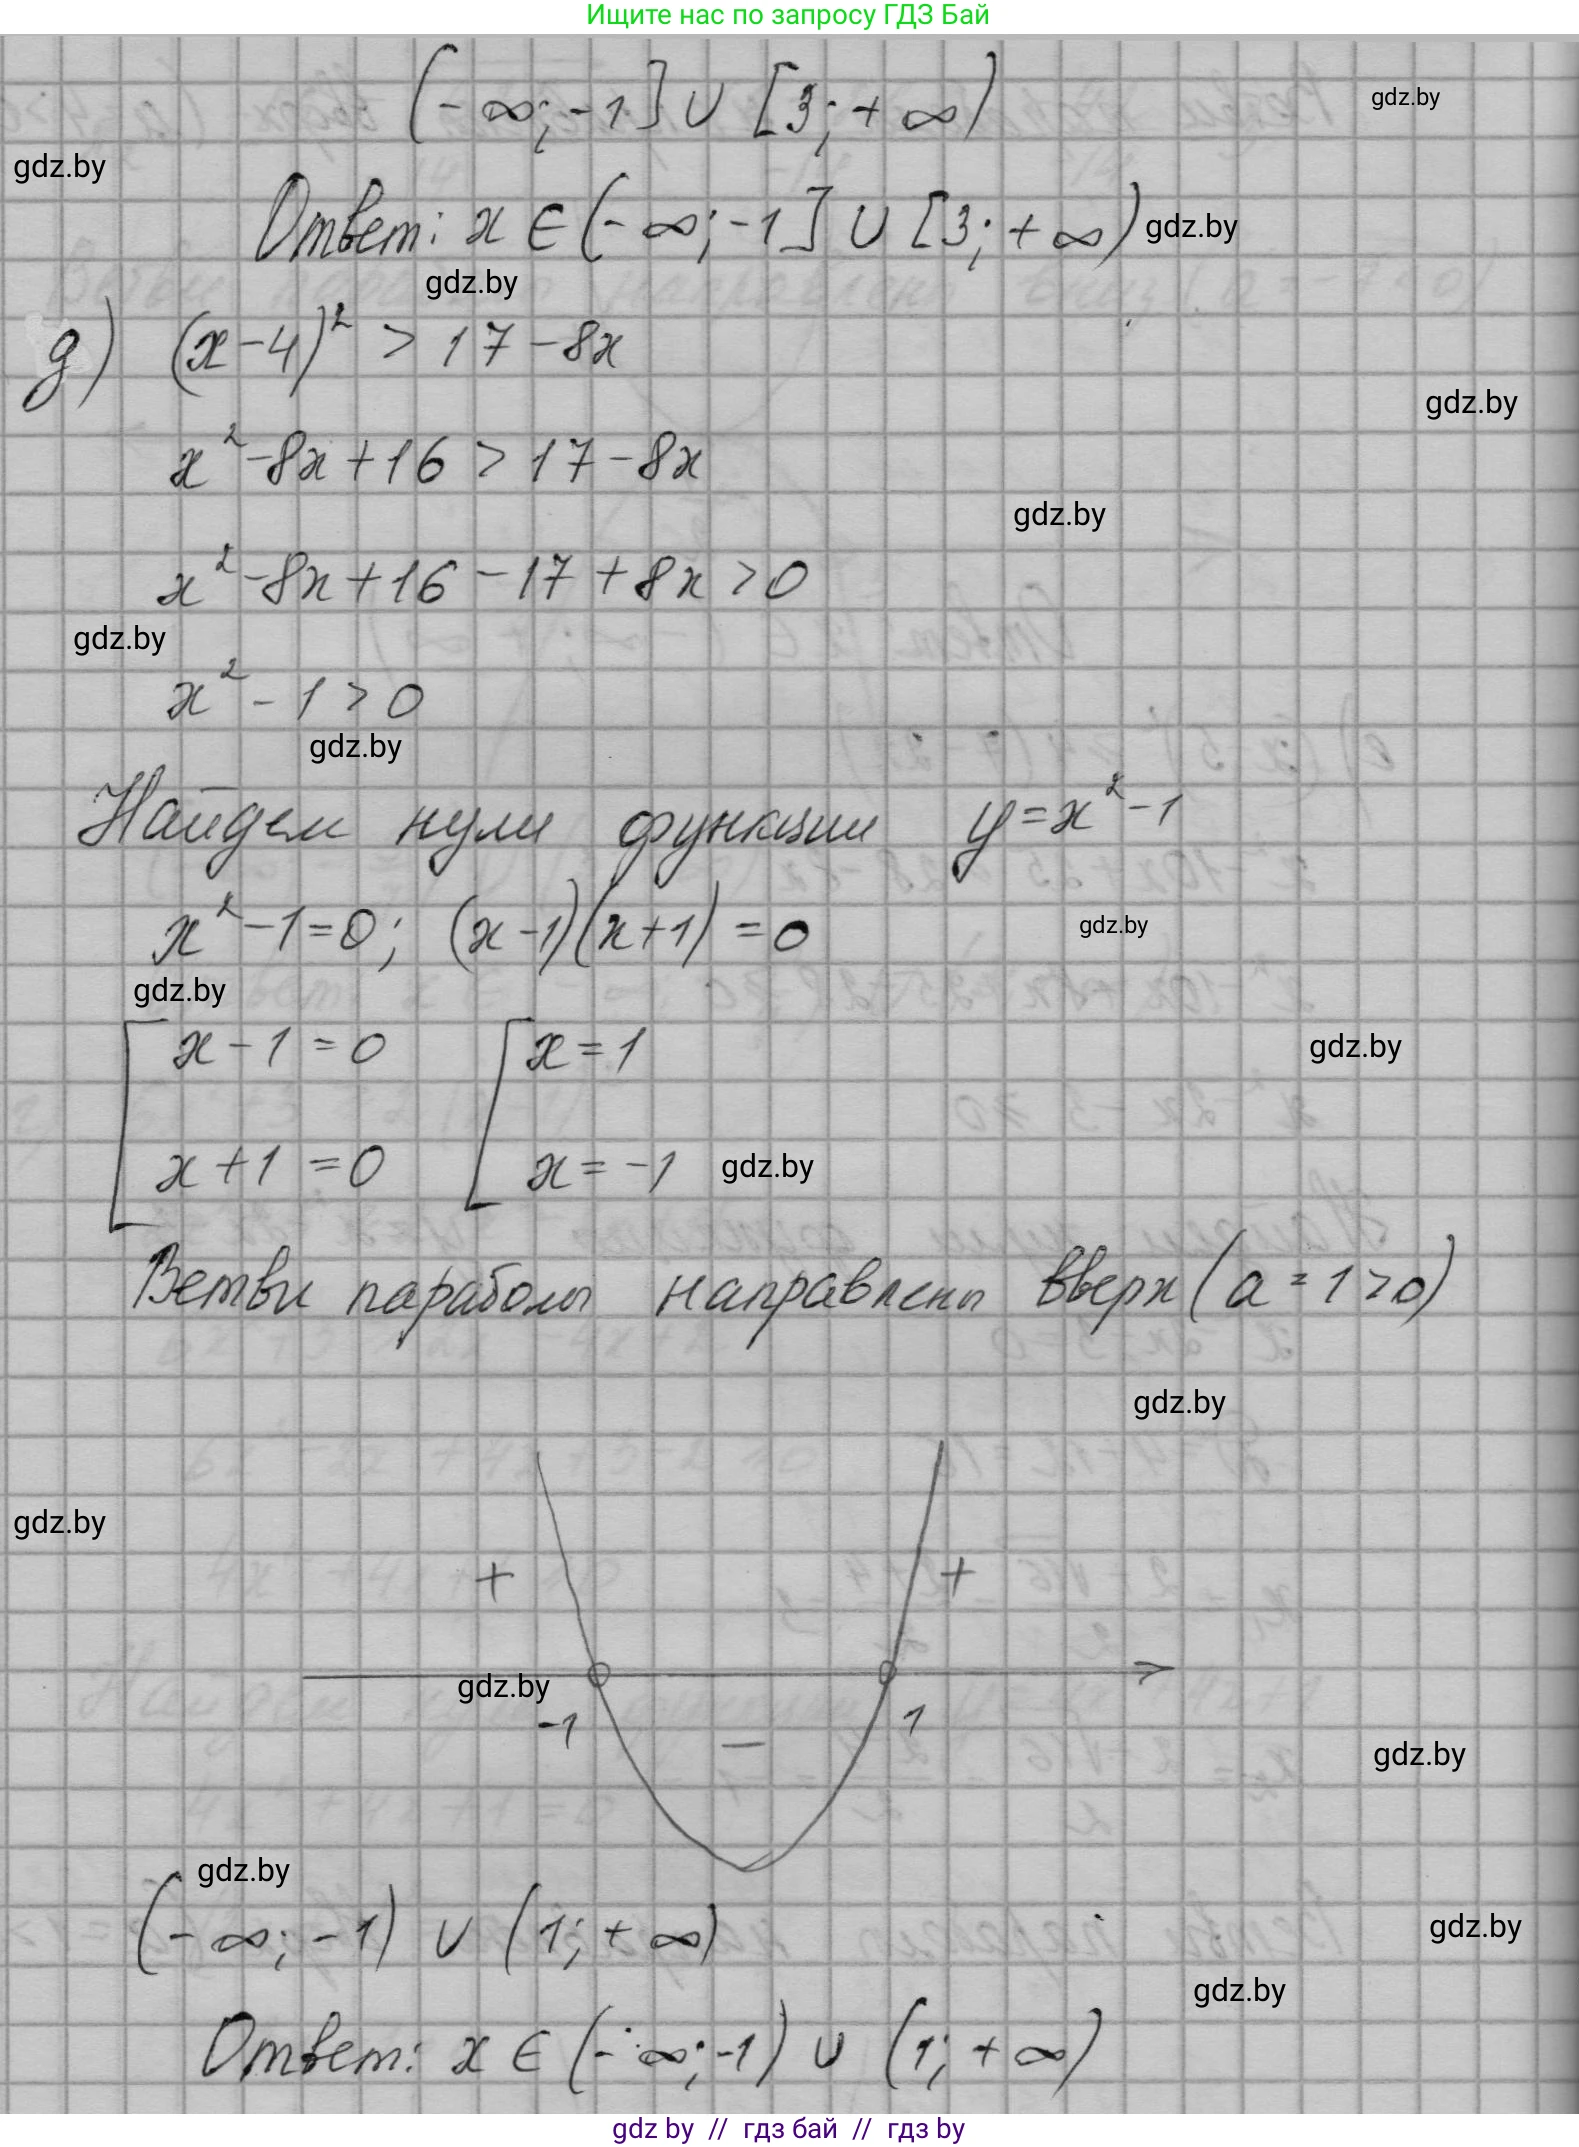 Ищите нас по запросу ГДЗ Бай
(-∞; -1] ∪ [3; +∞)
gdz.by
gdz.by
Ответ: x ∈ (-∞; -1] ∪ [3; +∞)
gdz.by
gdz.by
д) (x-4)² > 17 - 8x
gdz.by
x² - 8x + 16 > 17 - 8x
gdz.by
x² - 8x + 16 - 17 + 8x > 0
gdz.by
x² - 1 > 0
gdz.by
Найдем нули функции y = x² - 1
x² - 1 = 0; (x-1)(x+1) = 0
gdz.by
gdz.by
x - 1 = 0 x = 1
gdz.by
x + 1 = 0 x = -1
gdz.by
Ветви параболы направлены вверх (a = 1 > 0)
gdz.by
gdz.by
+ +
gdz.by
-1 - 1
gdz.by
gdz.by
(-∞; -1) ∪ (1; +∞)
gdz.by
gdz.by
Ответ: x ∈ (-∞; -1) ∪ (1; +∞)
gdz by // гдз бай // гдз by